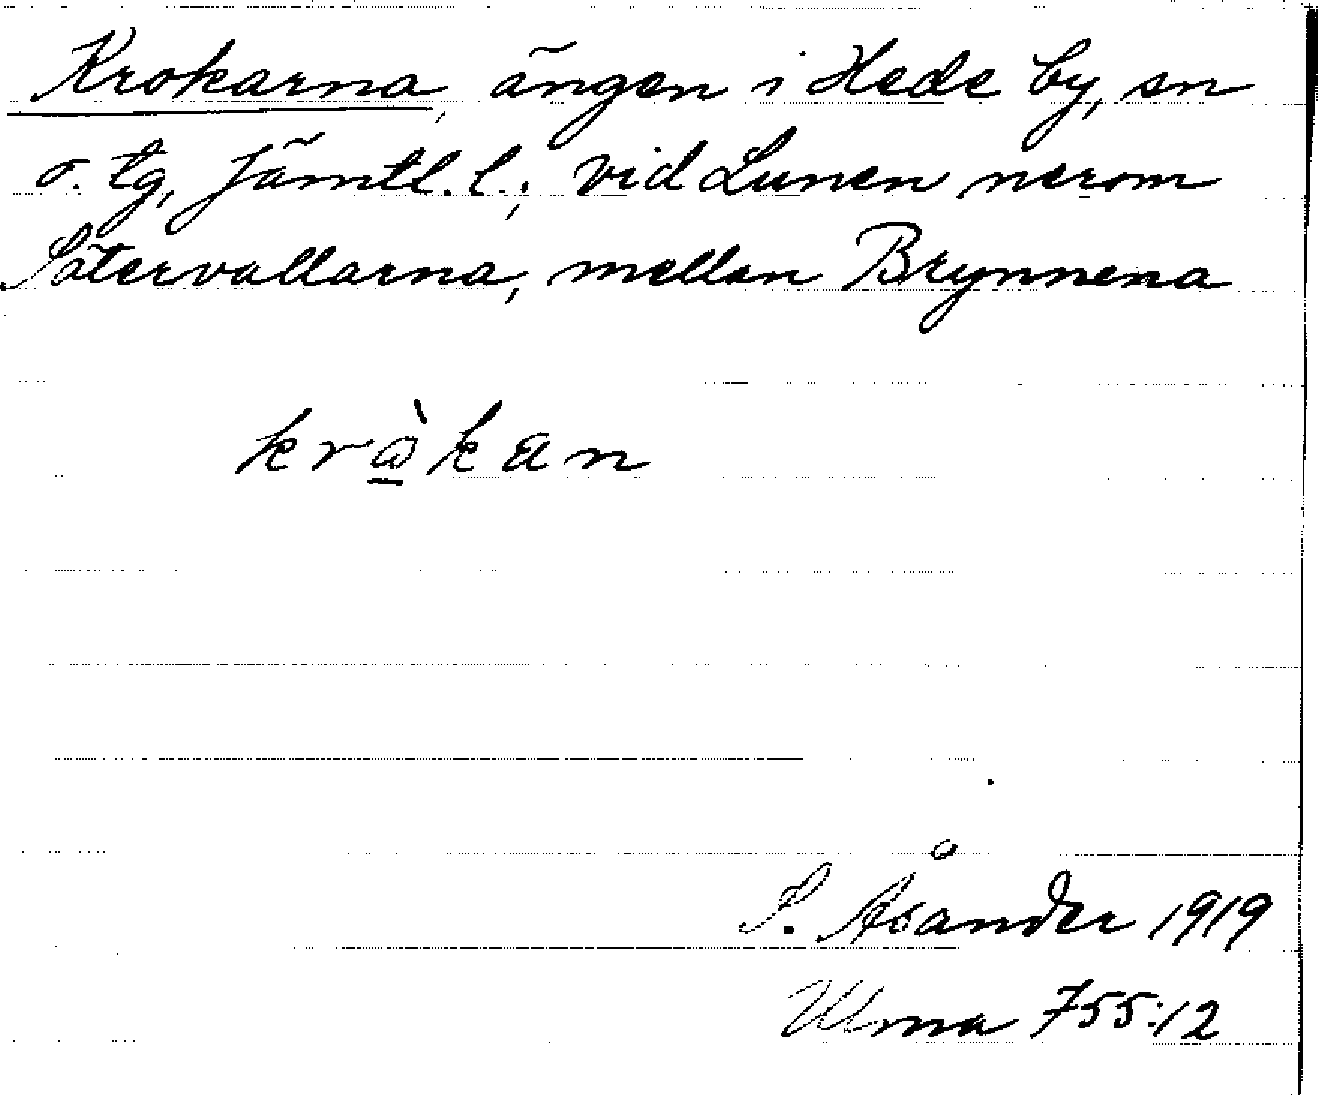 Krokarna, ängen i Hede by, sn
o. tg, Jämtl. l.; vid Lunen nerom
Sätervallarna, mellan Brynnena
kràkan
S. Åsander 1919
Ulma 755:12